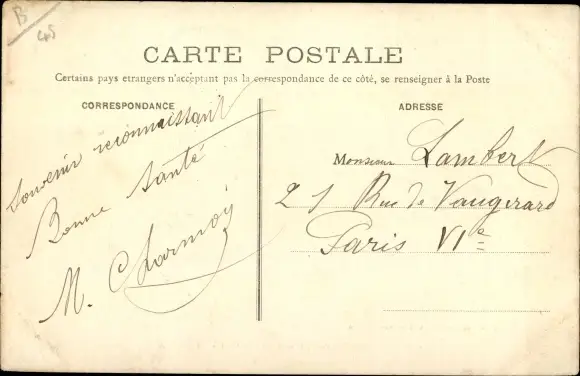 B
45
CARTE POSTALE
Certains pays etrangers n'acceptant pas la correspondance de ce côté, se renseigner à la Poste
CORRESPONDANCE
Souvenir reconnaissant
Bonne santé
M. Charmoy
ADRESSE
Monsieur Lambert
21 Rue de Vaugirard
Paris VIe